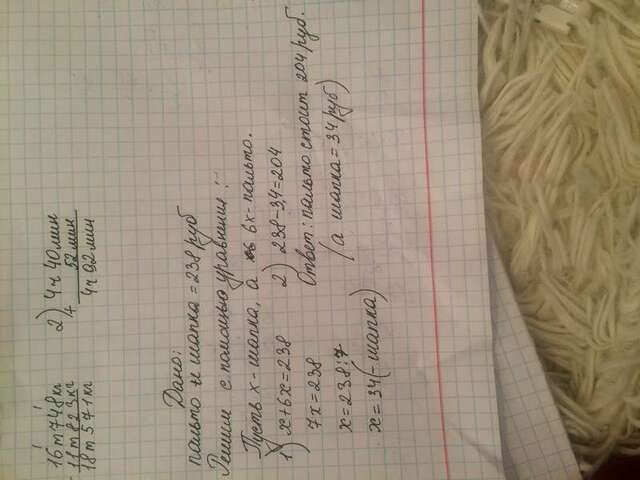 16т748кг
11т823кг
18т571кг
2) 4ч 40мин
+ 52 мин
4ч 92 мин
Дано:
пальто и шапка = 238 руб
Решим с помощью уравнения:
Пусть х-шапка, а 6х-пальто.
1) х+6х=238
7х=238
х=238:7
х=34(-шапка)
2) 238-34=204
Ответ: пальто стоит 204 руб.
(а шапка=34 руб)